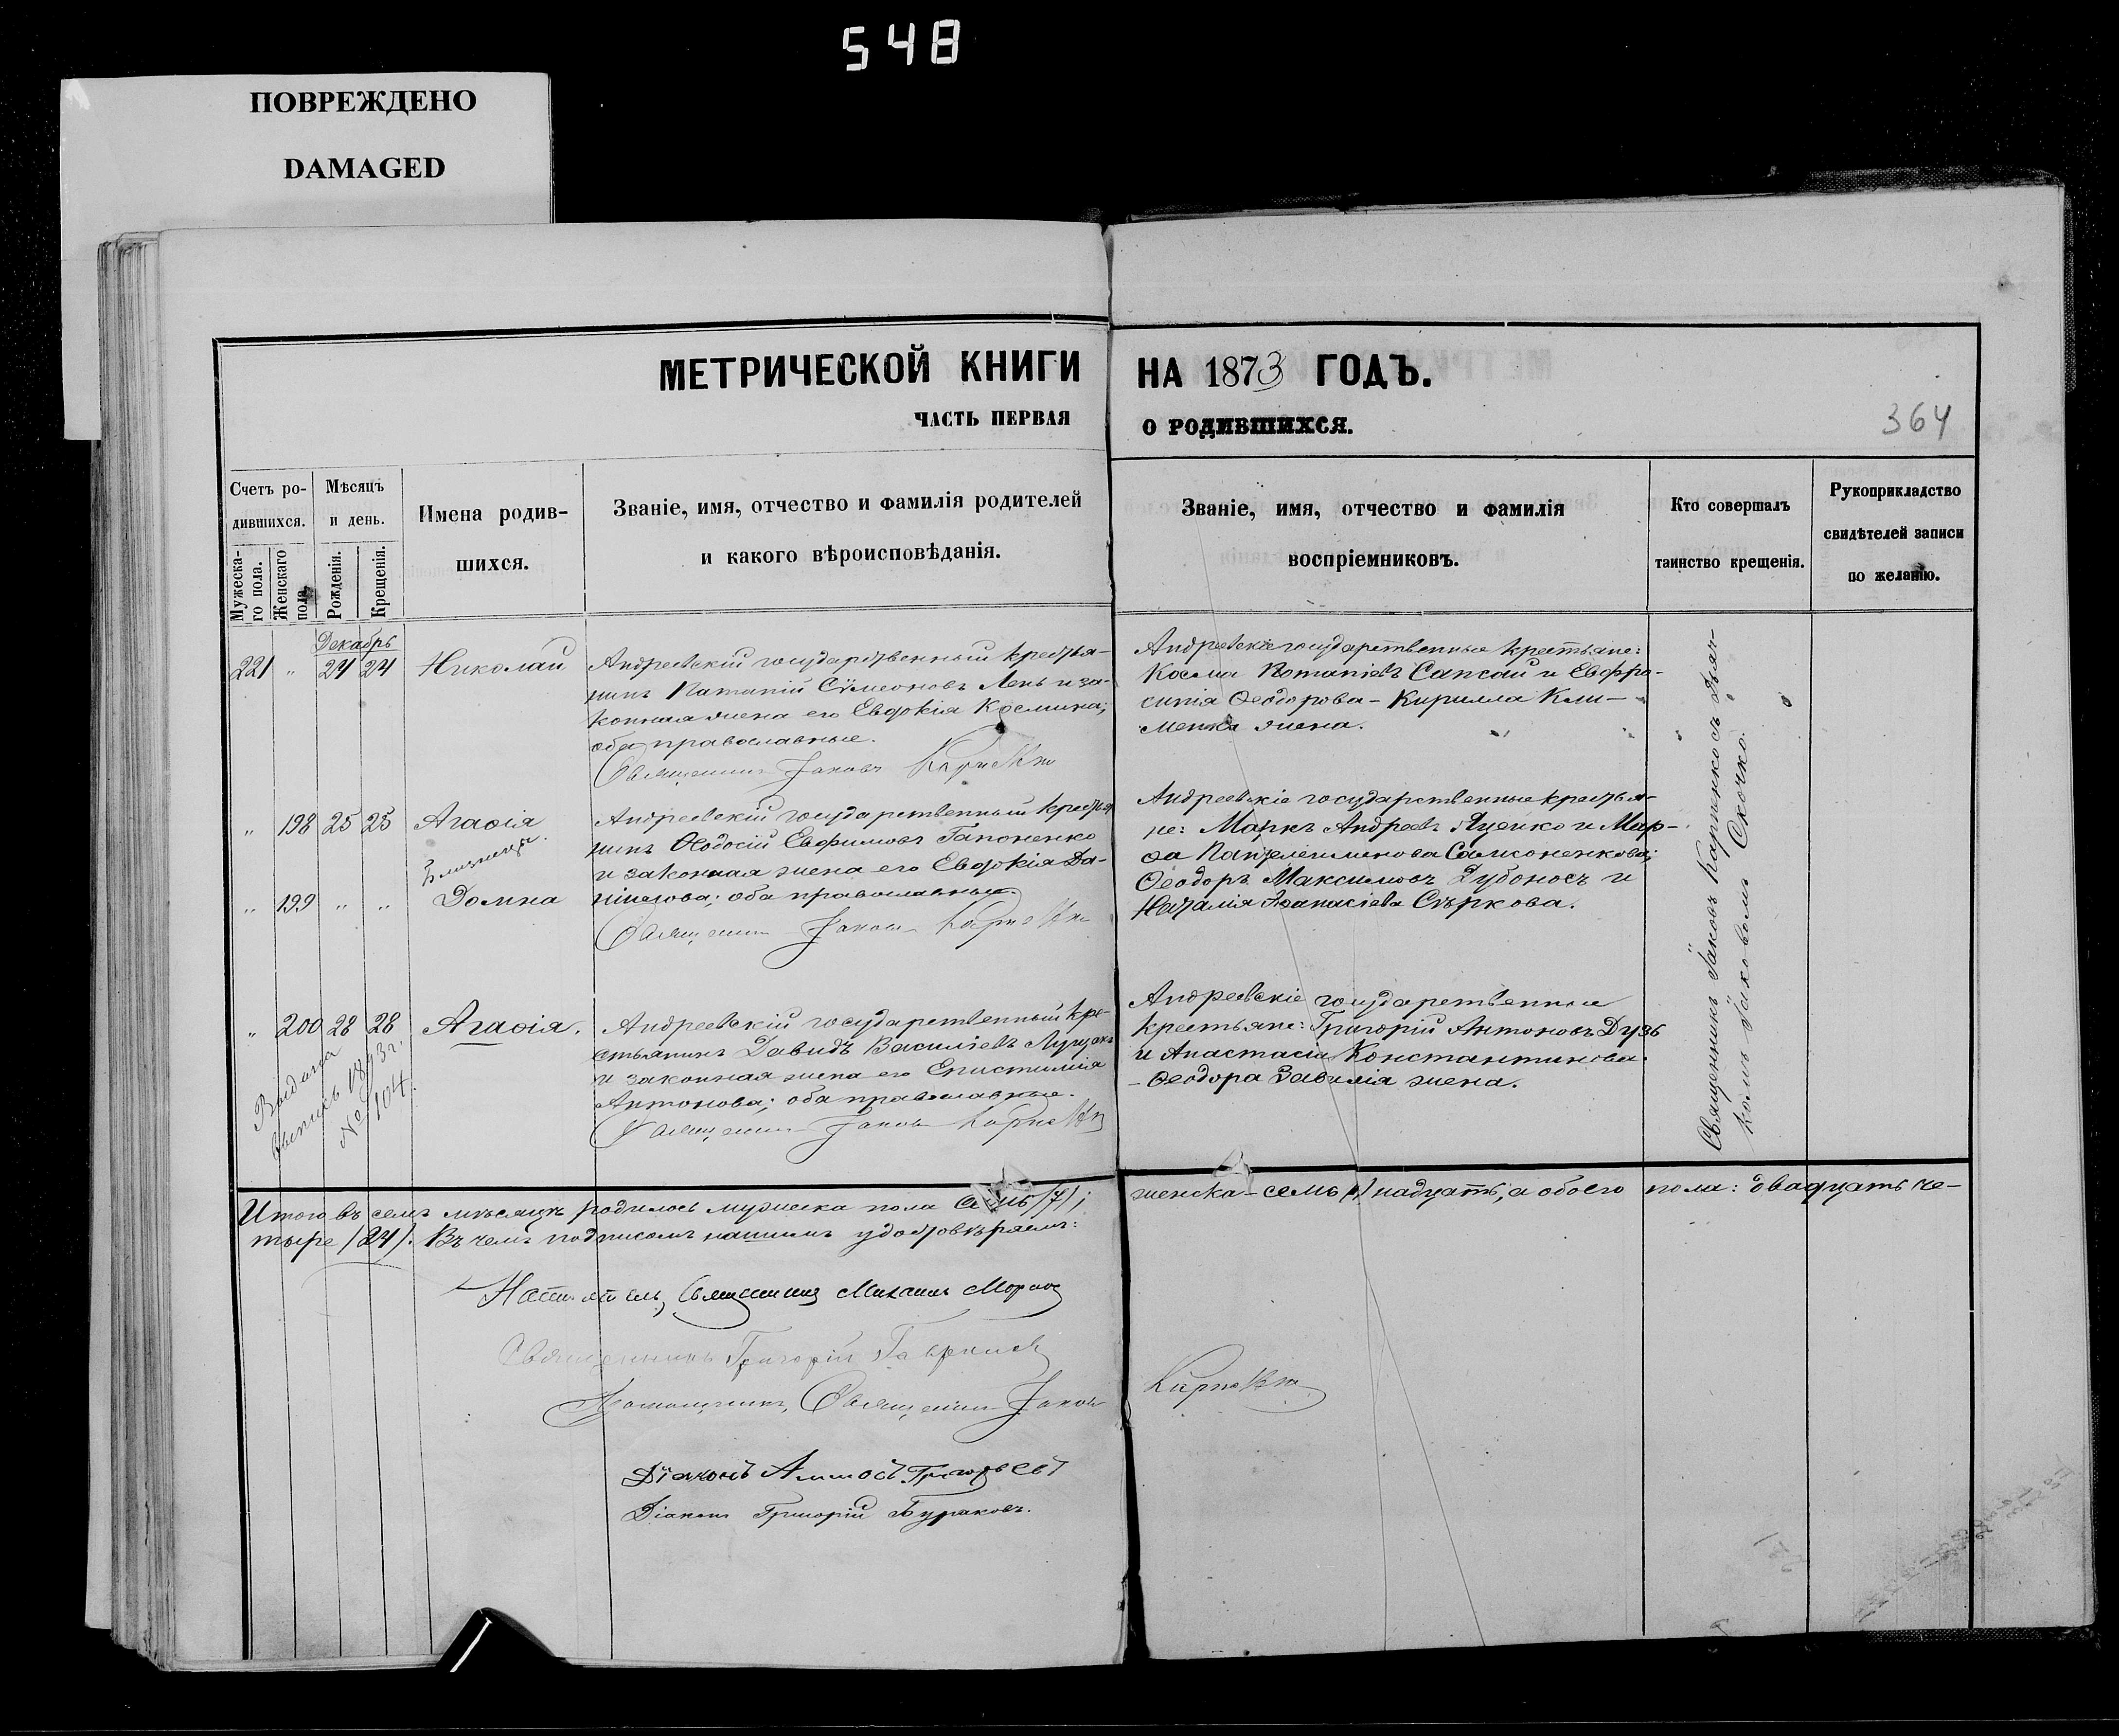 548
ПОВРЕЖДЕНО
DAMAGED
МЕТРИЧЕСКОЙ КНИГИ НА 1873 ГОДЪ.
ЧАСТЬ ПЕРВАЯ О РОДИВШИХСЯ.
364
Счетъ ро-
дившихся.
Мужеска-
го пола.
Женскаго
пола.
Мѣсяцъ
и день.
Рожденія.
Крещенія.
Имена родив-
шихся.
Званіе, имя, отчество и фамилія родителей
и какого вѣроисповѣданія.
Званіе, имя, отчество и фамилія
воспріемниковъ.
Кто совершалъ
таинство крещенія.
Рукоприкладство
свидѣтелей записи
по желанію.
Декабрь
221 " 24 24 Николай
Андреевскій государственный крестья-
нинъ Потапій Сѵмеоновъ Лень и за-
конная жена его Евдокія Космина;
оба православные.
Священникъ Іаковъ
Андреевскіе государственные крестьяне:
Косма Сапсай и Евфро-
синія Ѳеодорова - Кирилла Кли-
менка жена.
" 198 25 25 Агаѳія
Близнецы.
" 199 " " Домна
Андреевскій государственный крестья
нинъ Ѳеодосій Евфимовъ Гапоненко
и законная жена его Евдокія Да-
ніилова; оба православные.
Священникъ Іаковъ
Андреевскіе государственные крестья-
не: Маркъ Андреевъ Яценко и Мар-
ѳа Пантелеимонова Самсоненкова;
Ѳеодоръ Максимовъ Дубоносъ и
Наталія Аѳанасіева Сѣркова.
" 200 28 28 Агаѳія.
Выдана
выпись 1893 г.
№ 104.
Андреевскій государственный кре-
стьянинъ Давидъ Василіевъ
и законная жена его Епистимія
Антонова; оба православные.
Священникъ Іаковъ
Андреевскіе государственные
крестьяне: Григорій Антоновъ Дузь
и Анастасія Константинова
- Ѳеодора жена.
Священникъ Іаковъ съ Дьяч-
комъ Іаковомъ Скочко.
Итого въ семъ мѣсяцѣ родилось мужеска пола семь (7); женска - семь надцать, а обоего пола: двадцать че-
тыре (24). Въ чемъ подписомъ нашимъ удостовѣряемъ:
Настоятель, Священникъ Михаилъ
Священникъ Григорій
Помощникъ, Священникъ Іаковъ
Діаконъ Григорьевъ
Діаконъ Григорій Бураковъ.